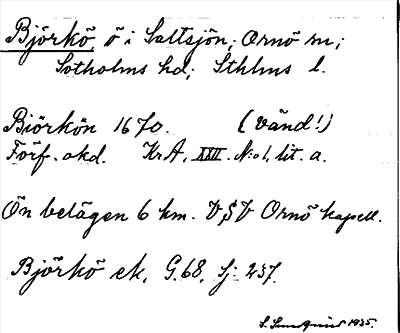 Björkö, ö i Saltsjön; Ornö sn;
Sotholms hd; Sthlms l.
Biörkön 1670. (Vänd!)
Förf. okd. KrA, XXII. N:o 1, lit. a.
Ön belägen 6 km. VSV Ornö kapell.
Björkö ek, G.68, Sj: 237.
S. 1935.